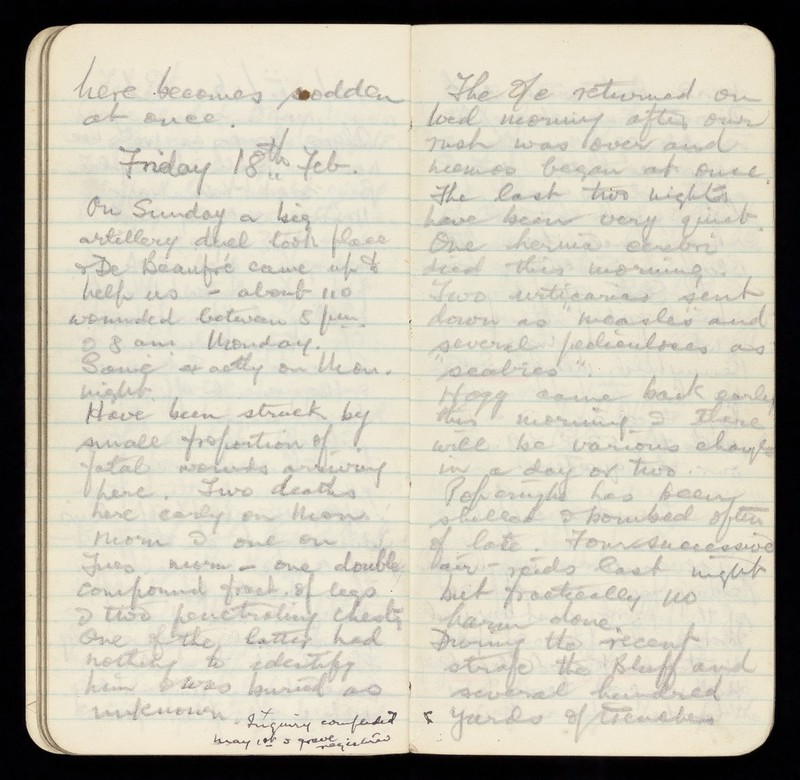 here becomes sodden
at once.
Friday 18th Feb.
On Sunday a big
artillery duel took place
& De Beaufré came up to
help us – about 110
wounded between 8 pm.
& 8 am Monday.
Same exactly on Mon.
night.
Have been struck by
small proportion of
fatal wounds arriving
here. Two deaths
here early on Mon
morn & one on
Tues morn – one double
compound fract. of legs
& two penetrating chests
One of the latter had
nothing to identify
him & was buried as
unknown +
+ Inquiry completed
May 1st & grave
registered
The returned on
Wed morning after our
rush was over and
began at once.
The last two nights
have been very quiet.
One hernia cerebri
died this morning.
Two urticarias sent
down as "measles" and
several pediculoses as
"scabies".
Hogg came back early
this morning & there
will be various changes
in a day or two.
Poperinghe has been
shelled & bombed often
of late. Four successive
air-raids last night
but practically no
harm done.
During the recent
strafe the Bluff and
several hundred
yards of trenches